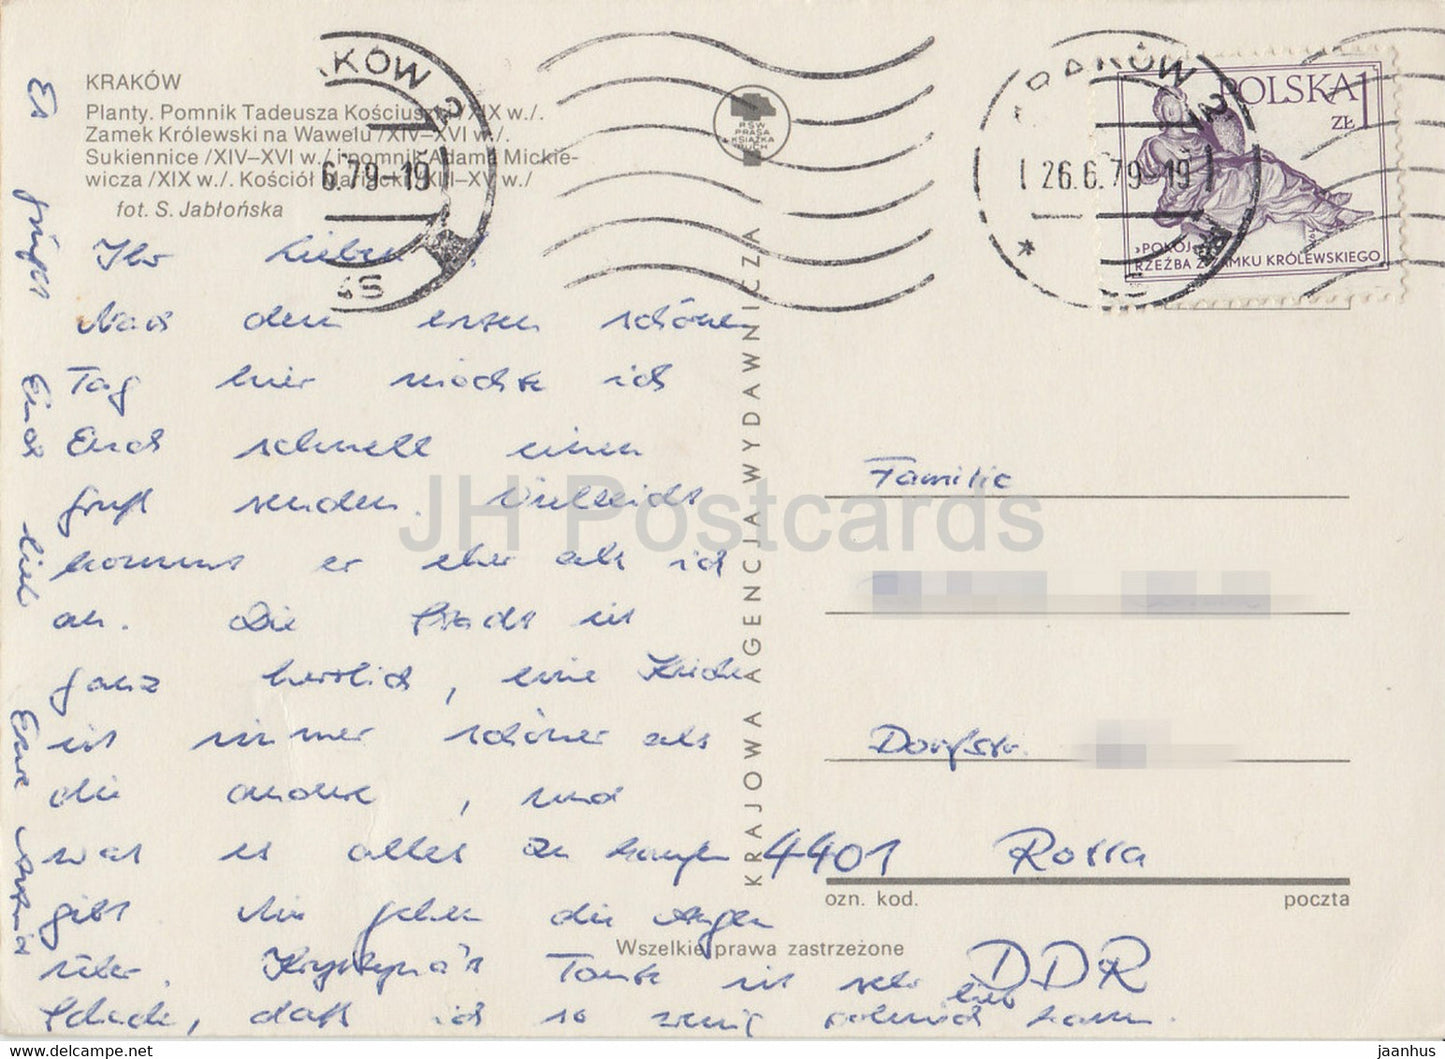 KRAKÓW
Planty. Pomnik Tadeusza Kościuszki /XIX w./.
Zamek Królewski na Wawelu /XIV–XVI w./.
Sukiennice /XIV–XVI w./ i pomnik Adama Mickie-
wicza /XIX w./. Kościół Mariacki /XIII–XV w./
fot. S. Jabłońska
KRAKÓW 2
6.79-19
RSW
PRASA
KSIĄŻKA
RUCH
KRAKÓW 2
26.6.79-19
POLSKA 1
ZŁ
›POKÓJ‹
RZEŹBA Z ZAMKU KRÓLEWSKIEGO
Ihr Lieben!
Nach dem ersten schönen
Tag hier möchte ich
Euch schnell einen
Gruß senden. Vielleicht
kommt er eher als ich
an. Die Stadt ist
ganz herrlich, eine Kirche
ist immer schöner als
die andere, und
was es alles zu kaufen
gibt. Mir gehen die Augen
über. Krystyna's Tante ist sehr lieb
Schade, daß ich so wenig polnisch kann.
Es grüßt Euch lieb Eure
KRAJOWA AGENCJA WYDAWNICZA
Familie
Dorfstr.
4401 Rossa
ozn. kod. poczta
DDR
Wszelkie prawa zastrzeżone
JH Postcards
www.delcampe.net
jaanhus